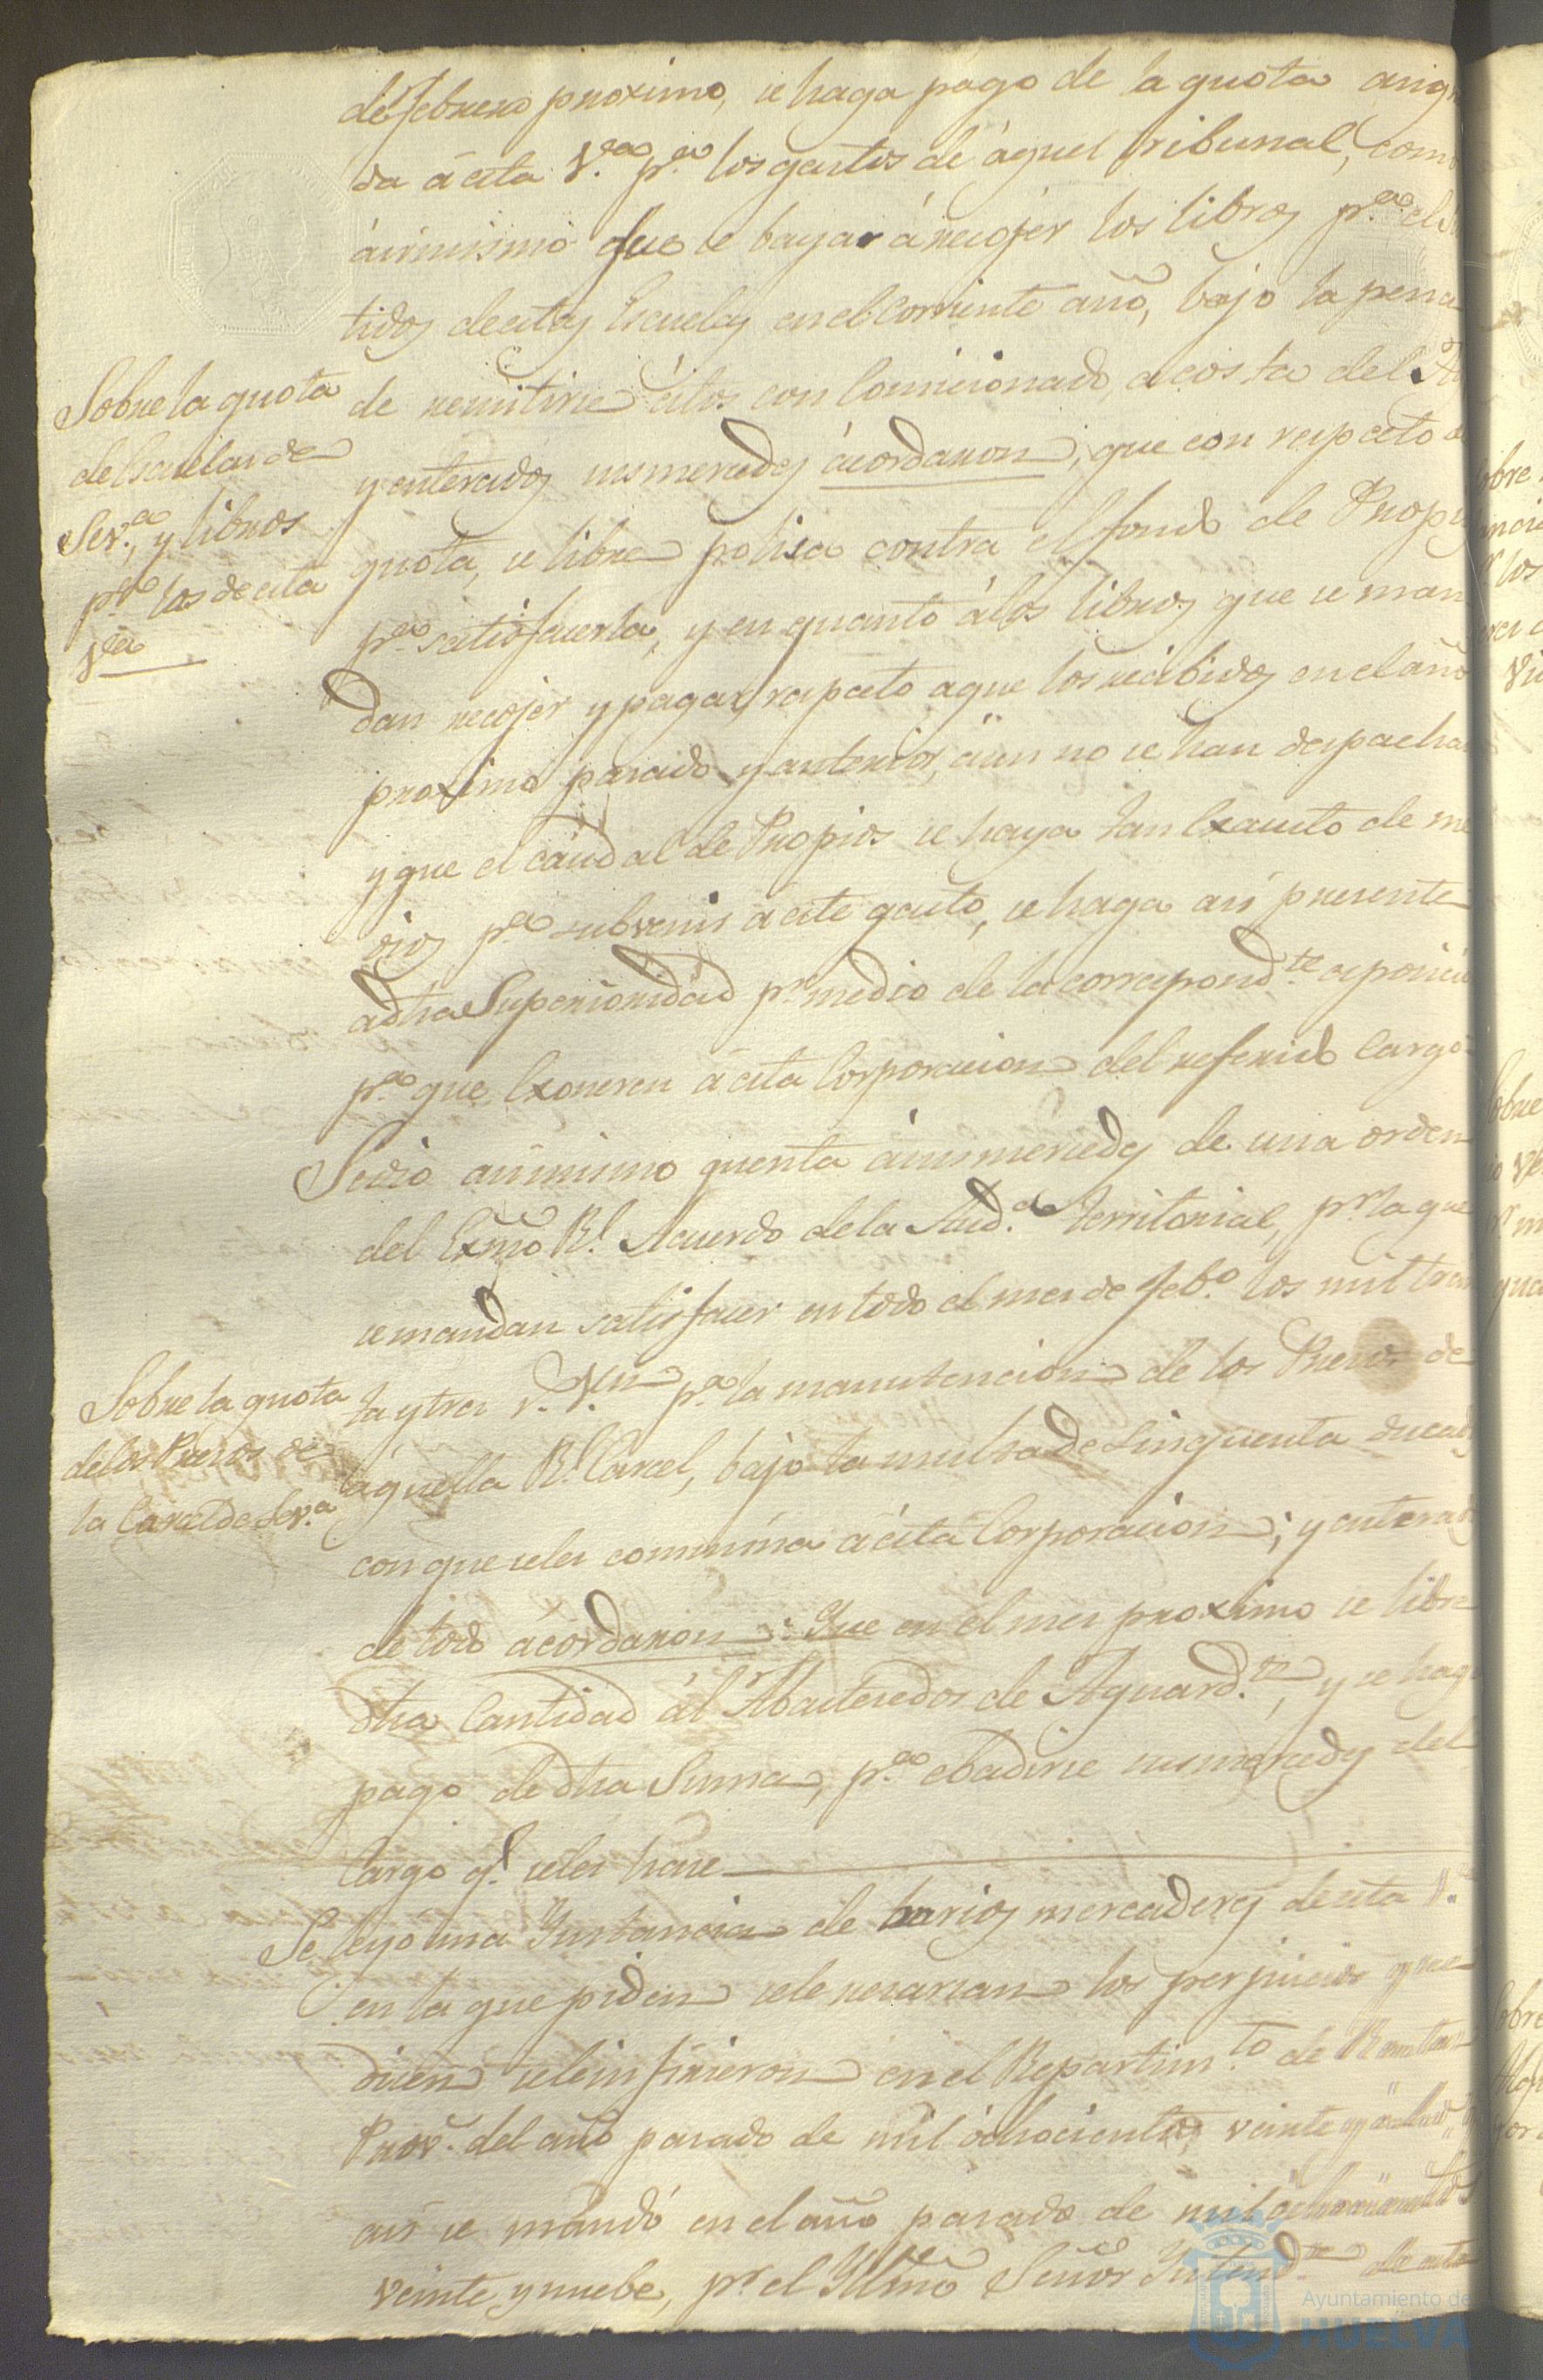 de febrero proximo, se haga pago de la quota asig
da á esta V.ª p.ª los gastos de aquel tribunal, como
ásimismo que se bayan á recojer los libros p.ª el
tidos de estas Escuelas en el corriente año, bajo la pena
Sobre la quota
de Escuelas de
Sev.ª, y libros
p.ª las de esta
V.ª
de remitirse estos con Comicionado, a costa del
y enterados sus mercedes ácordaron; que con respecto a
quota, se libre polisa contra el fondo de Propi
p.ª satisfacerla, y en quanto á los libros que se man
dan recojer y pagar, respecto a que los recibidos en el año
proximo pasado y anterior, aun no se han despacha
y que el caudal de Propios se haya tan Exausto de me
dios p.ª subvenir á este gasto, se haga así presente
a dha Superioridad p.r medio de la correspond.te esposicio
p.ª que Exoneren á esta Corporacion del referido Cargo
Se dio asimismo quenta á sus mercedes de una orden
del Exmo R.l Acuerdo de la Aud.ª territorial, p.r la que
se mandan satisfacer en todo el mes de Feb.º los mil trein
Sobre la quota
de los Presos de
la Carcel de Sev.ª
ta y tres r.s V.n p.ª la manutencion de los Presos de
aquella R.l Carcel, bajo la multa de Sinquenta ducad
con que seles conmina á esta Corporacion; y enterad
de todo ácordaron: Que en el mes proximo se libre
dha Cantidad ál Abastecedor de Aguard.te, y se haga
pago de dha Suma, p.ª ebadirse sus mercedes del
Cargo q.e seles hace
Se leyó una Instancia de barios mercaderes de esta V.ª
en la que piden sele resarsan los perjuicios que
dicen sele infirieron en el Repartim.to de Rentas
Prov.s del año pasado de mil ochocientos veinte y
así se mandó en el año pasado de mil ochocientos
veinte y nuebe, p.r el Ylmo Señor Intend.te de esta
Ayuntamiento de
HUELVA